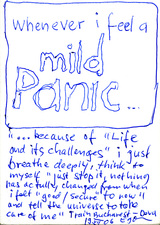 whenever i feel a
mild
Panic...
"... because of "Life
and its challenges" i just
breathe deeply, think to
myself "just stop it, nothing
has actually changed from when
i felt "good / secure to now"
and tell the universe to take
care of me" Train Bucharest - Deva